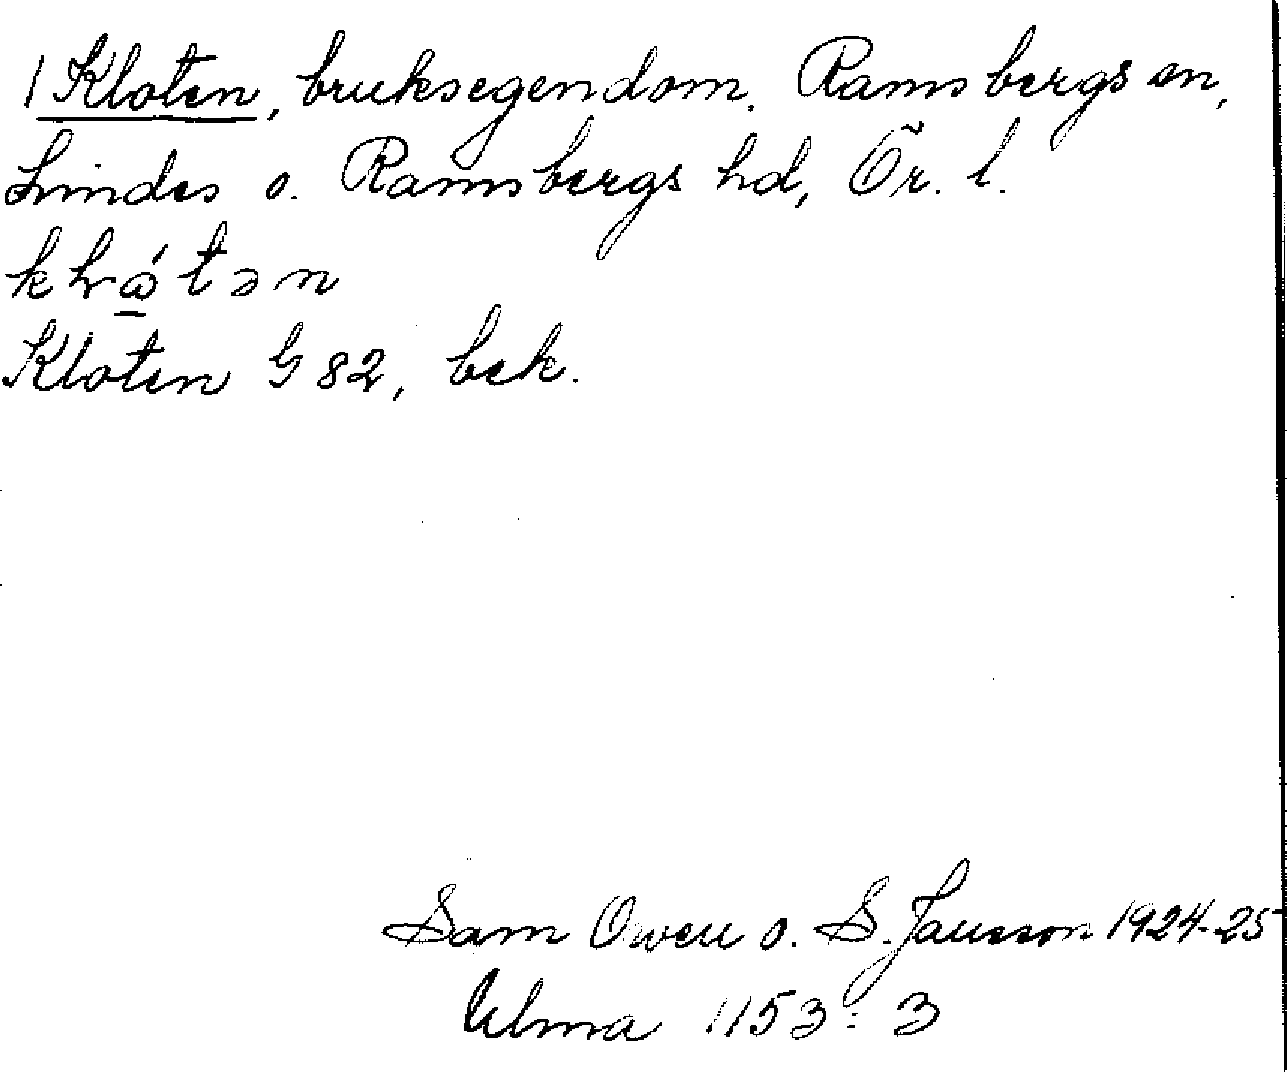 1 Kloten, bruksegendom. Ramsbergs sn,
Lindes o. Ramsbergs hd, Ör. l.
Kloten G 82, bek.
Sam Owen o. S. Jansson 1924-25
Ulma 1153: 3